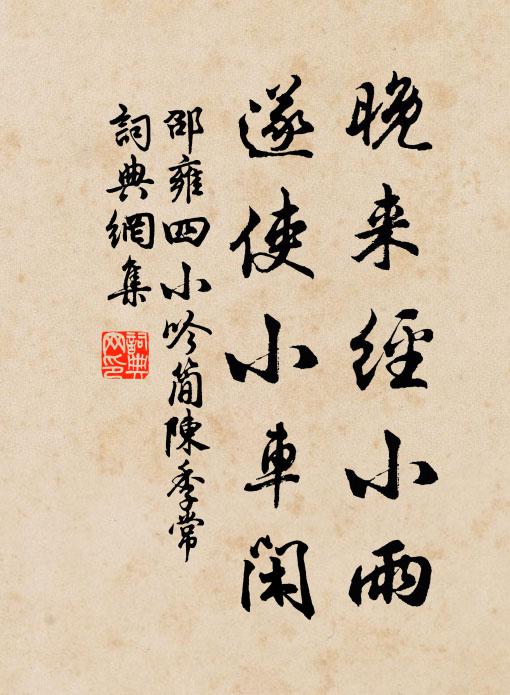 晚来經小雨
遂使小車閑
邵雍四小吟简陳季常
詞典網集
詞典网印